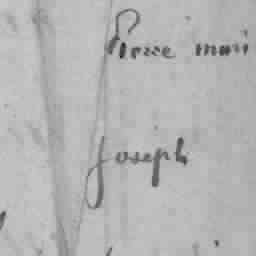 Pierre mari
Joseph